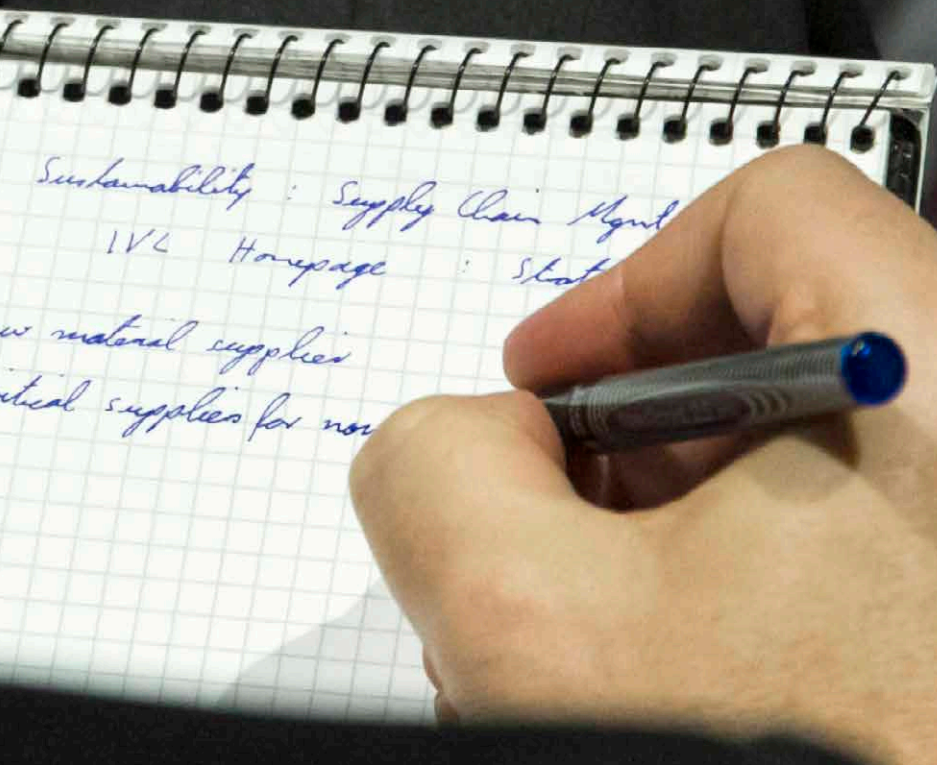 Sustainability : Supply Chain Mgmt
IVL Homepage : Strat
w material supplier
itical suppliers for non